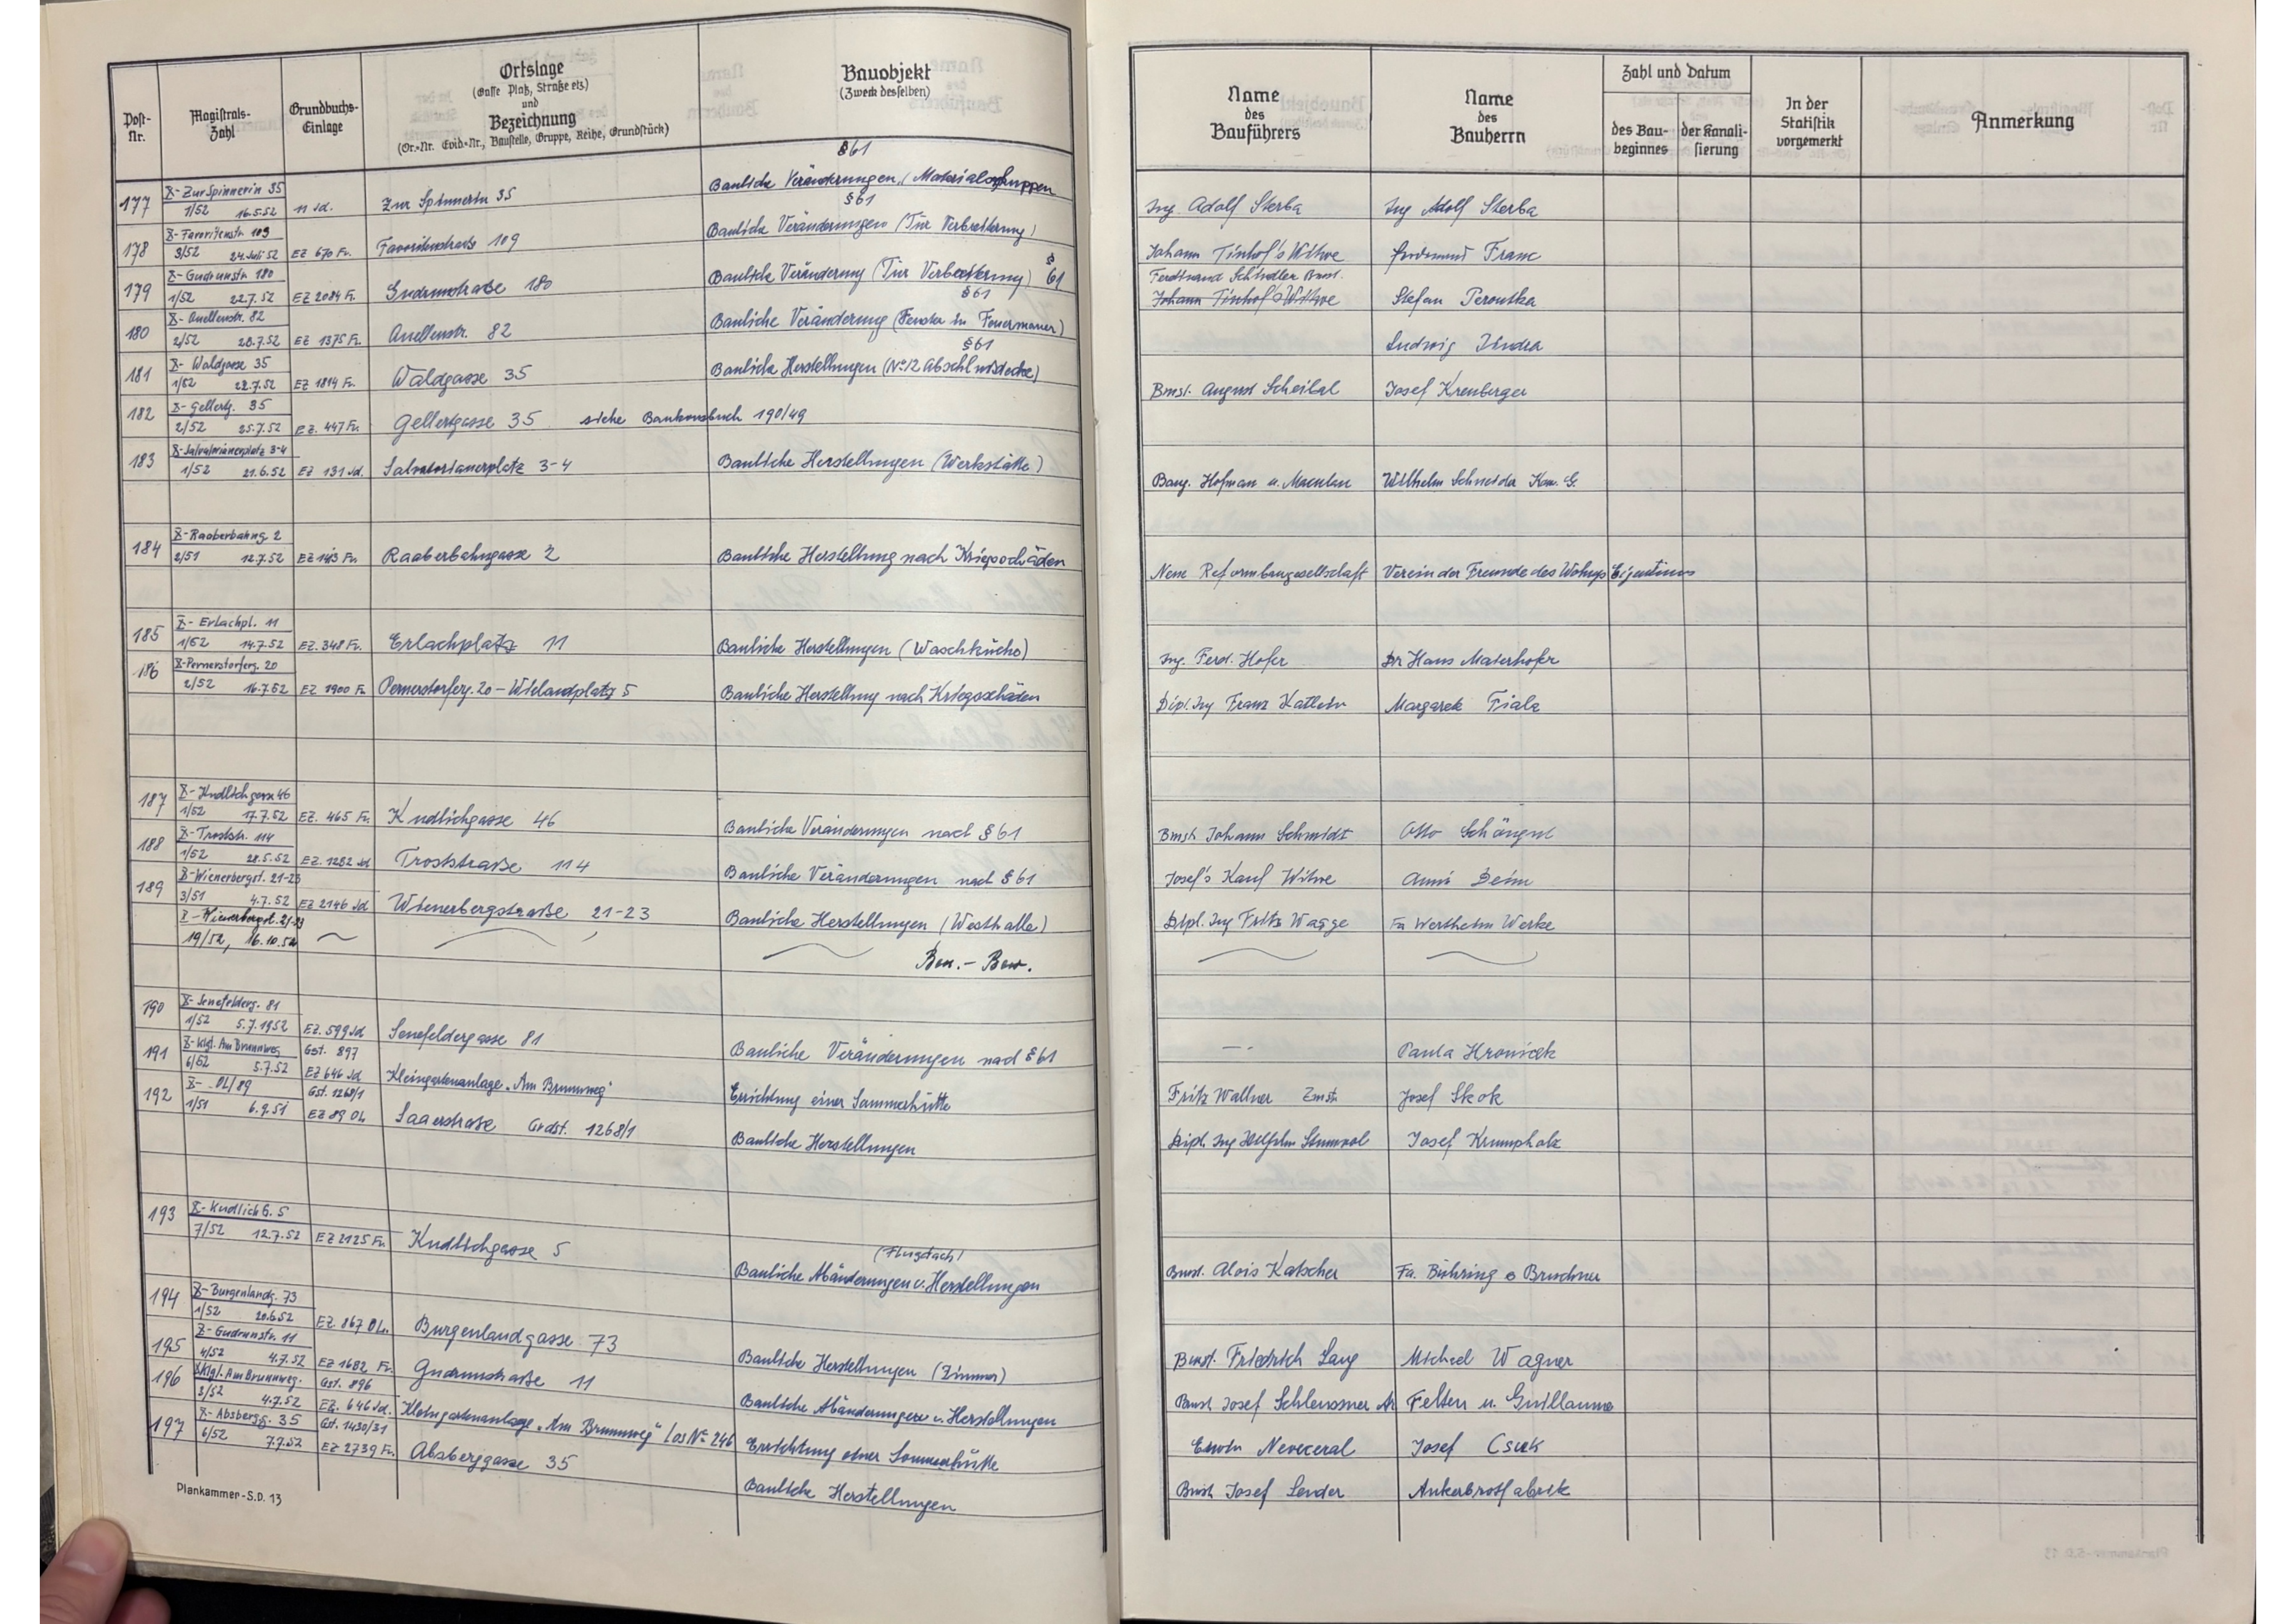 Post-Nr. Magistrats-Zahl Grundbuchs-Einlage Ortslage (Gasse Platz, Straße etz.) und Bezeichnung (Or.-Nr. Evid.-Nr., Baustelle, Gruppe, Reihe, Grundstück) Bauobjekt (Zweck desselben) Name des Bauführers Name des Bauherrn Zahl und Datum des Baubeginnes der Kanalisierung In der Statistik vorgemerkt Anmerkung
§ 61
177 X-Zur Spinnerin 35 1/52 16.5.52 Jd. Zur Spinnerin 35 Bauliche Veränderungen (Materialschuppen Ing. Adolf Sterba Ing Adolf Sterba
§ 61
178 X-Favoritenstr. 109 3/52 24. Juli 52 EZ 670 Fr. Favoritenstraße 109 Bauliche Veränderungen (Tür Verbreiterung) Johann Tinhof's Witwe Franc
179 X-Gudrunstr. 180 1/52 22.7.52 EZ 2084 Fr. Gudrunstraße 180 Bauliche Veränderung (Tür Verbreiterung) § 61 Ferdinand Schindler Bmst. Johann Tinhof's Witwe Stefan Peroutka
§ 61
180 X-Quellenstr. 82 2/52 28.7.52 EZ 1375 Fr. Quellenstr. 82 Bauliche Veränderung (Fenster in Feuermauer) Ludwig Jindra
§ 61
181 X-Waldgasse 35 1/52 22.7.52 EZ 1814 Fr. Waldgasse 35 Bauliche Herstellungen (Nº 12 Abschlußdecke) Bmst. August Scheibal Josef Krenberger
182 X-Gellertg. 35 2/52 25.7.52 EZ. 447 Fr. Gellertgasse 35 siehe Baukonsbuch 190/49
183 X-Salvatorianerplatz 3-4 1/52 21.6.52 EZ 131 Jd. Salvatorianerplatz 3-4 Bauliche Herstellungen (Werkstätte) Baug. Hofman u. Maculan Wilhelm Schneider Kom. G.
184 X-Raaberbahng. 2 2/51 12.7.52 EZ 1413 Fr. Raaberbahngasse 2 Bauliche Herstellung nach Kriegsschäden Neue Reformbaugesellschaft Verein der Freunde des Wohngs Eigentums
185 X-Erlachpl. 11 1/52 14.7.52 EZ. 348 Fr. Erlachplatz 11 Bauliche Herstellungen (Waschküche) Ing. Ferd. Hofer Dr Hans Materhofer
186 X-Pernerstorferg. 20 2/52 16.7.52 EZ 1900 Fr. Pernerstorferg. 20 - Wielandplatz 5 Bauliche Herstellung nach Kriegsschäden Dipl. Ing Franz Katlein Margarete Fiala
187 X-Kudlichgasse 46 1/52 17.7.52 EZ. 465 Fr. Kudlichgasse 46 Bauliche Veränderungen nach § 61 Bmst. Johann Schmidt Otto
188 X-Troststr. 114 1/52 28.5.52 EZ. 1282 Jd Troststraße 114 Bauliche Veränderungen nach § 61 Josef's Kauf Witwe
189 X-Wienerbergst. 21-23 3/51 4.7.52 EZ 2146 Jd Wienerbergstraße 21-23 Bauliche Herstellungen (Westhalle) Dipl. Ing Fritz Wagge Fa Wertheim Werke
X-Wienerbergst. 21-23
19/52, 16.10.52 Ben.-Bew.
190 X-Senefelderg. 81 1/52 5.7.1952 EZ. 599 Jd Senefeldergasse 81 Bauliche Veränderungen nach § 61 Paula Hronicek
191 X-Klgl. Am Brunnweg 6/52 5.7.52 Gst. 897 EZ 646 Jd Kleingartenanlage „Am Brunnweg" Errichtung einer Sommerhütte Fritz Wallner Zmst. Josef Skok
192 X-OL/89 1/51 6.9.51 Gst. 1268/1 EZ 89 OL Saarstraße Grdst. 1268/1 Bauliche Herstellungen Dipl. Ing Josef Krumpholz
193 X-Kudlich G. 5 7/52 12.7.52 EZ 2125 Fr. Kudlichgasse 5 (Flugdach) Bauliche Abänderungen u. Herstellungen Bmst. Alois Katscher Fa. Bühring & Bruckner
194 X-Burgenlandg. 73 1/52 20.6.52 EZ. 867 OL. Burgenlandgasse 73 Bauliche Herstellungen (Zimmer) Bmst. Friedrich Lang Michael Wagner
195 X-Gudrunstr. 11 4/52 4.7.52 EZ 1682 Fr. Gudrunstraße 11 Bauliche Abänderungen u. Herstellungen Bmst. Josef Schleussner Felten u. Guillaume
196 X Klgl. Am Brunnweg. 3/52 4.7.52 Gst. 896 EZ. 646 Jd. Kleingartenanlage „Am Brunnweg" Los Nº 246 Errichtung einer Sommerhütte Erwin Neveceral Josef Csuk
197 X-Absbergg. 35 6/52 7.7.52 Gst. 1430/31 EZ 2739 Fr. Absberggasse 35 Bauliche Herstellungen Bmst. Josef Sender Ankerbrotfabrik
Plankammer-S.D. 13